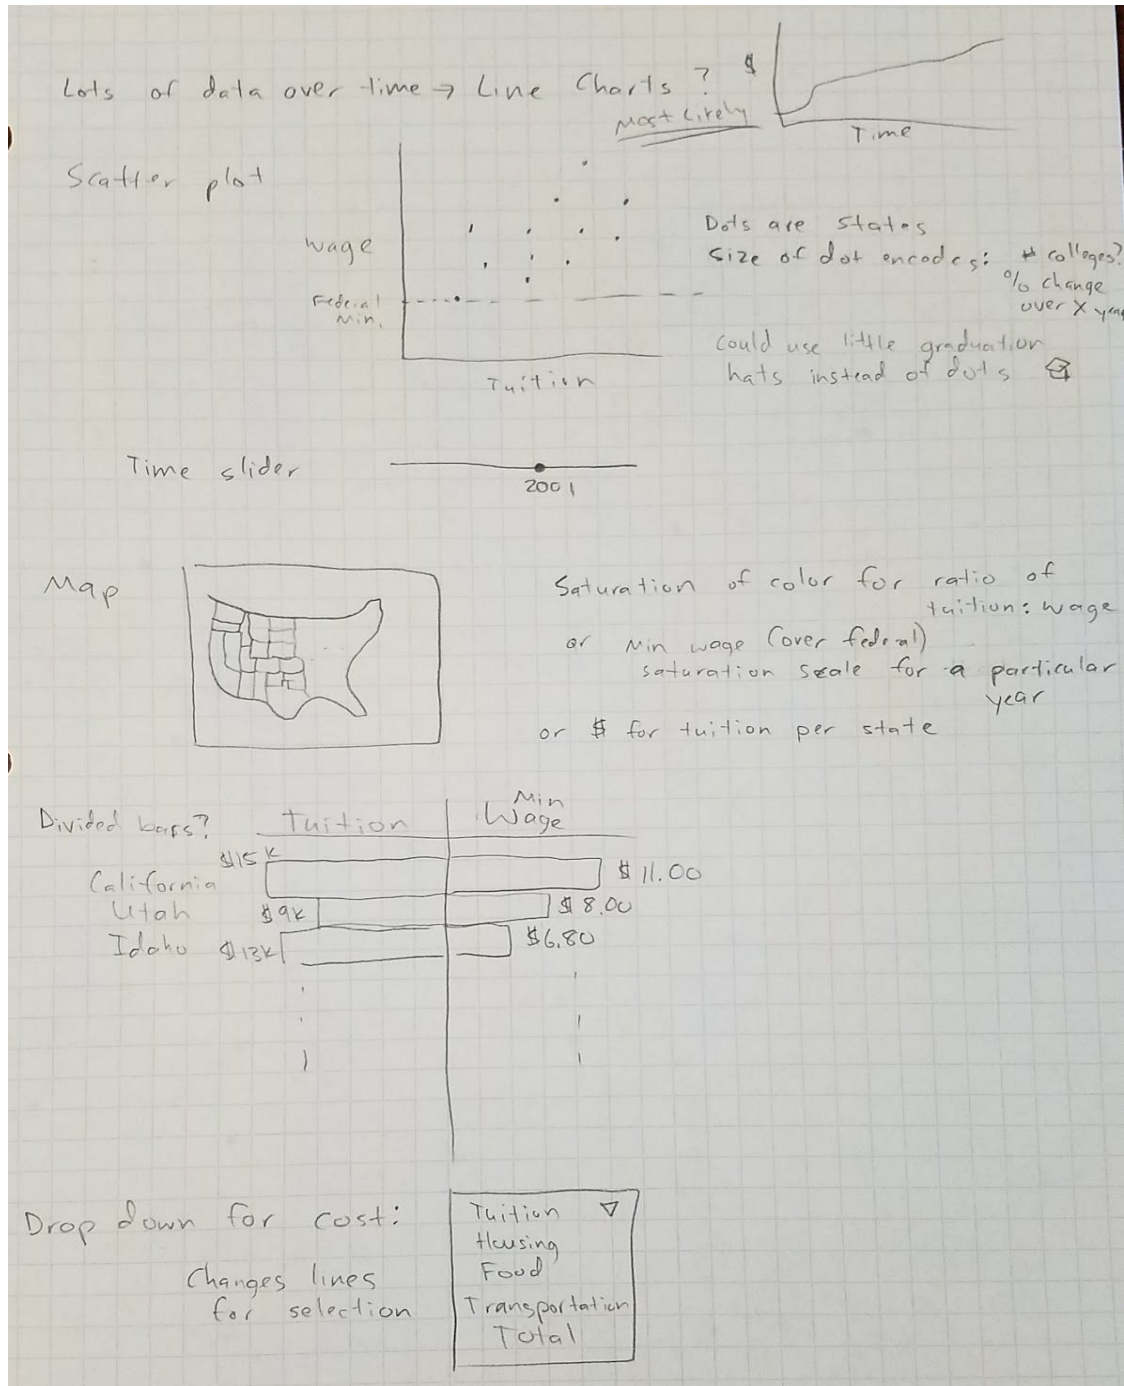 Lots of data over time → Line Charts ?
Most Likely
$
Time
Scatter plot
Wage
Federal
Min.
Tuition
Dots are states
size of dot encodes: # colleges?
% change
over X year
could use little graduation
hats instead of dots
Time slider
2001
Map
Saturation of color for ratio of
tuition: wage
or Min wage (over federal)
saturation scale for a particular
year
or $ for tuition per state
Divided bars?
Tuition
Min
Wage
California $15K $11.00
Utah $9K $8.00
Idaho $13K $6.80
Drop down for cost:
Changes lines
for selection
Tuition
Housing
Food
Transportation
Total